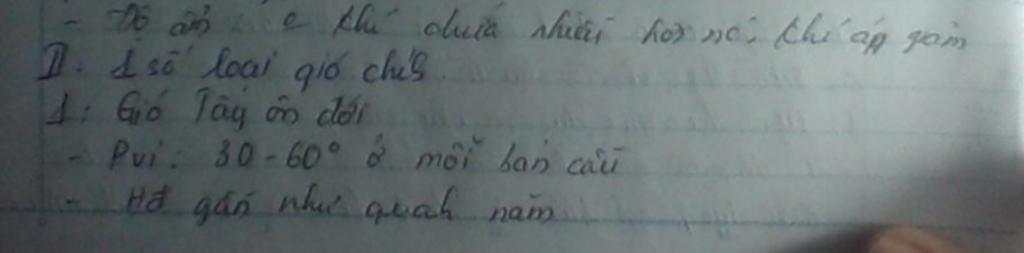 - Độ ẩm: k khí chứa nhiều hơi nc: khí áp giảm
II. 1 số loại gió chính
1: Gió Tây ôn đới
- Pvi: 30-60° ở mỗi bán cầu
- Hđ gần như quanh năm